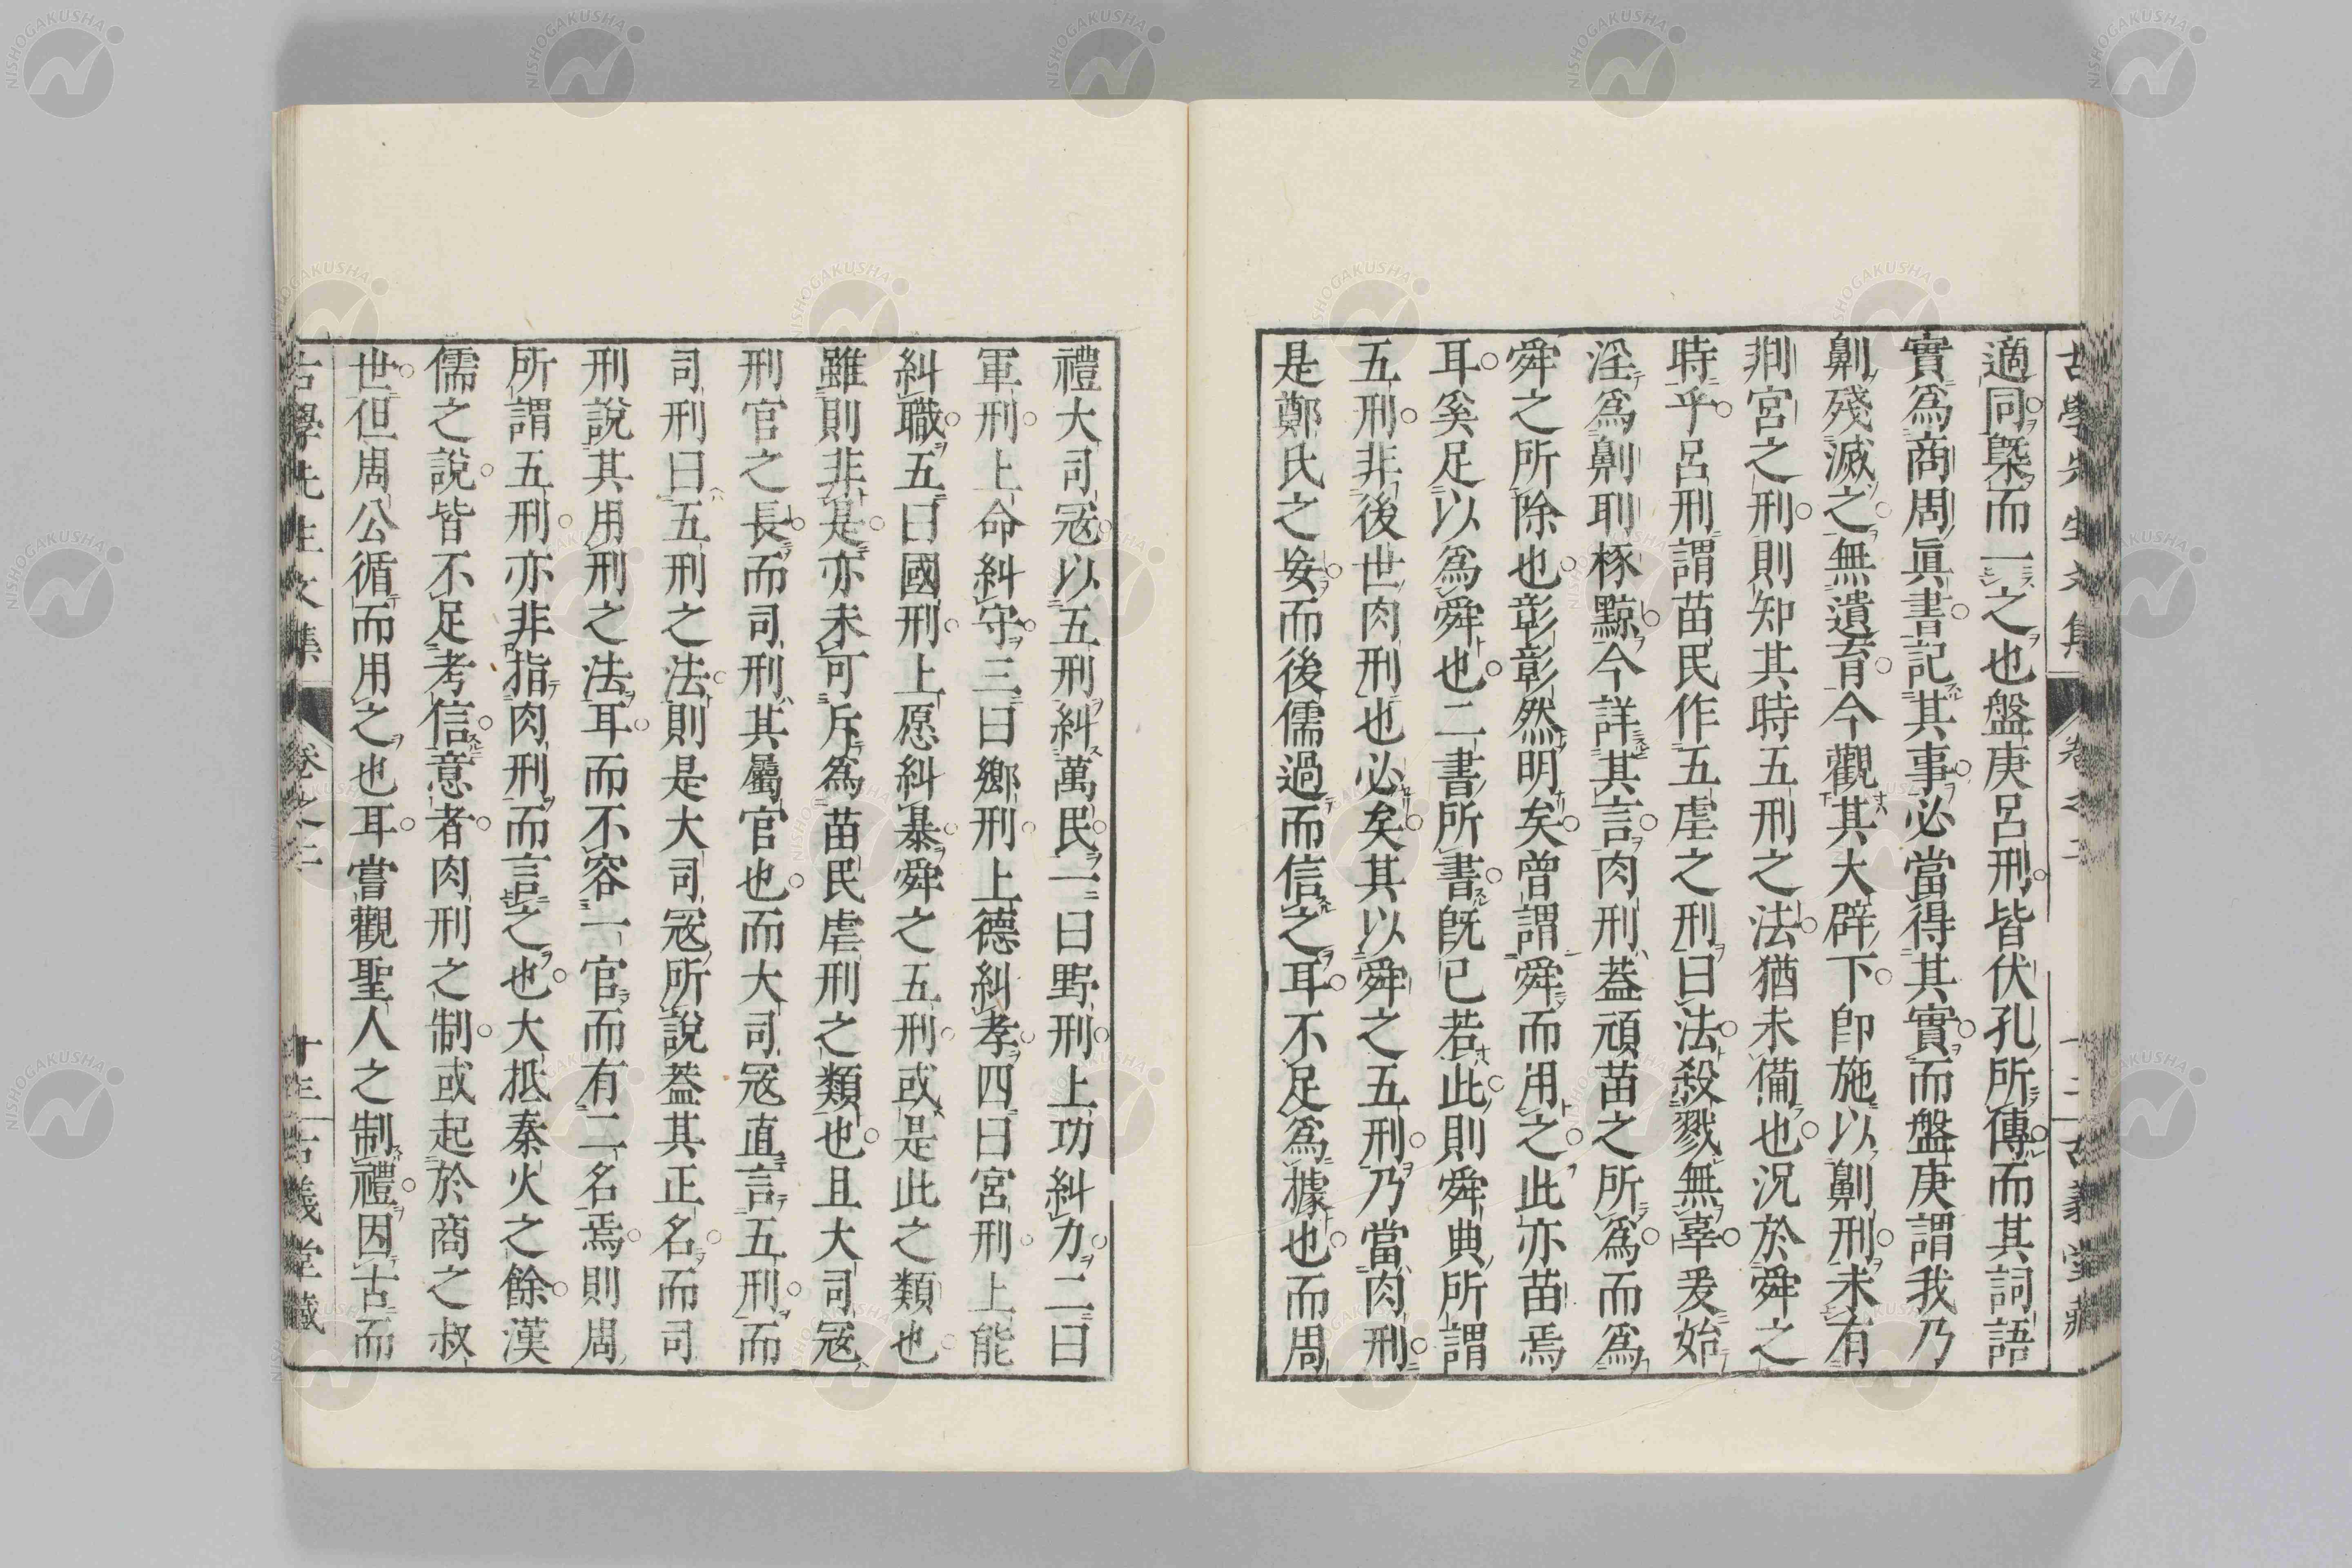 適同槩而一之也盤庚呂刑皆伏孔所傳而其詞語
實爲商周眞書記其事必當得其實而盤庚謂我乃
劓殄滅之無遺育今觀其大辟下卽施以劓刑未有
剕宮之刑則知其時五刑之法猶未備也況於舜之
時乎呂刑謂苗民作五虐之刑曰法殺戮無辜爰始
淫爲劓刵椓黥今詳其言肉刑蓋頑苗之所爲而爲
舜之所除也彰彰然明矣曾謂舜而用之此亦苗焉
耳奚足以爲舜也二書所書旣已若此則舜典所謂
五刑非後世肉刑也必矣其以舜之五刑乃當肉刑
是鄭氏之妄而後儒過而信之耳不足爲據也而周
禮大司冦以五刑糾萬民一曰野刑上功糾力二曰
軍刑上命糾守三曰鄉刑上德糾孝四曰宮刑上能
糾職五曰國刑上愿糾暴舜之五刑或是此之類也
雖則非是亦未可斥爲苗民虐刑之類也且大司冦
刑官之長而司刑其屬官也而大司冦直言五刑而
司刑曰五刑之法則是大司冦所說蓋其正名而司
刑說其用刑之法耳而不容一官而有二名焉則周
所謂五刑亦非指肉刑而言之也大抵秦火之餘漢
儒之說皆不足考信意者肉刑之制或起於商之叔
世但周公循而用之也耳嘗觀聖人之制禮因古而
古學先生文集 卷之二 十三 古義堂藏
NISHOGAKUSHA